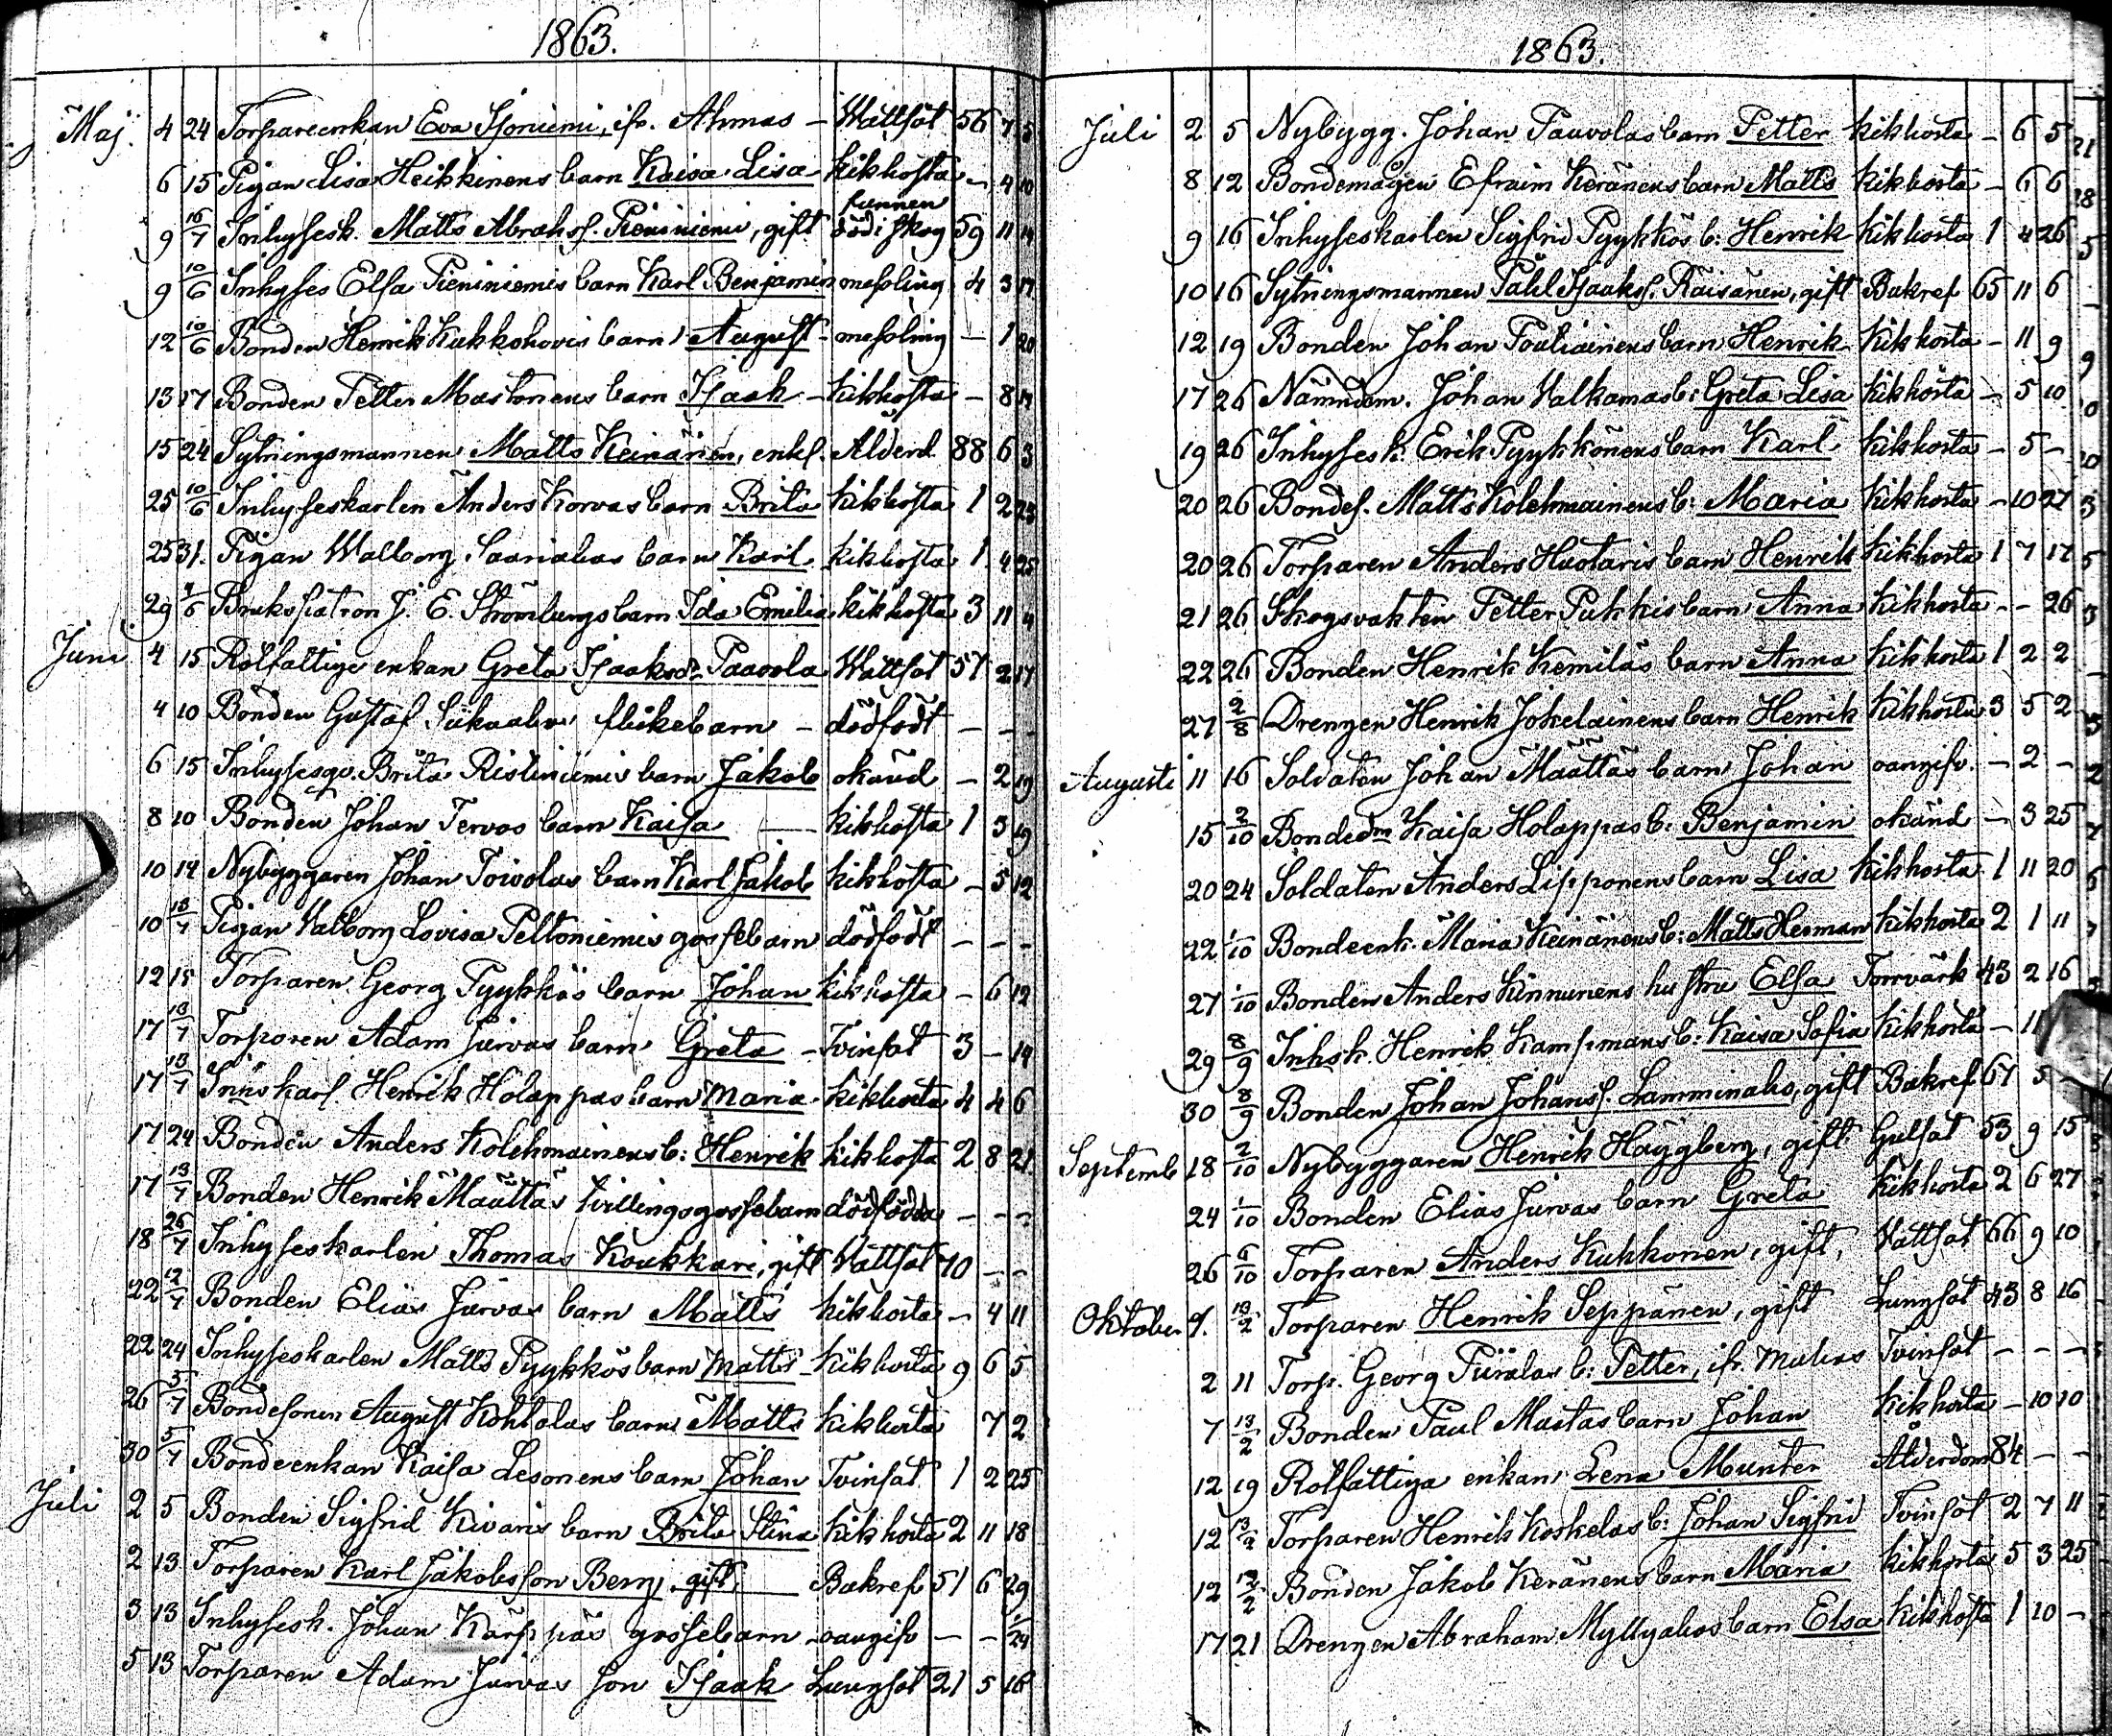 1863.
Maj 4 24 Torpareenkan Eva Isoniemi, ifr. Ahmas - Wattsot 56 7 5
6 15 Pigan Lisa Heikkinens barn Kaisa Lisa - kikhosta - 4 10
funnen
9 16/7 Inhysesk. Matts Abrahs. Pieniniemi, gift död i skog 59 11 14
9 10/6 Inhyses Elsa Pieniniemis barn Karl Benjamin messling 4 3 17
12 10/6 Bonden Henrik Kukkohovis barn August - messling - 1 20
13 17 Bonden Petter Mustonens barn Isaak - kikhosta - 8 14
15 24 Sytningsmannen Matts Keinänen, enkl. Ålderd. 88 6 3
25 10/6 Inhyseskarlen Anders Korvas barn Brita kikhosta 1 2 23
25 31. Pigan Walborg Saariahos barn Karl kikhosta 1 4 25
29 Brukspatron J. E. Strömbergs barn Ida Emilia kikhosta 3 11 4
Juni 4 15 Rotfattige enkan Greta Isaksdr Paavola Wattsot 57 2 17
4 10 Bonden Gustaf Siikaahos flickebarn - dödfödt - - -
6 15 Inhysesqv. Brita Ristiniemis barn Jakob okänd - 2 19
8 10 Bonden Johan Tervos barn Kaisa - kikhosta 1 3 19
10 14 Nybyggaren Johan Toivolas barn Karl Jakob kikhosta - 5 12
10 13/7 Pigan Walborg Lovisa Peltoniemis gossebarn dödfödt - - -
12 15 Torparen Georg Pyykkös barn Johan kikhosta - 6 12
17 13/7 Torparen Adam Jurvas barn Greta - Tvinsot 3 - 14
17 13/7 Inhs karl. Henrik Holappas barn Maria - kikhosta 4 4 6
17 24 Bonden Anders Kolehmainens b: Henrik kikhosta 2 8 21
17 13/7 Bonden Henrik Määttäs tvillingsgossebarn dödfödda - - -
18 26/7 Inhyseskarlen Thomas Koukkari, gift Wattsot 70 - -
22 12/7 Bonden Elias Jurvas barn Matts kikhosta - 4 11
22 24 Inhyseskarlen Matts Pyykkös barn Matts - kikhosta 9 6 5
26 5/7 Bondesonen August Kohtalas barn Matts kikhosta 7 2
30 5/7 Bondeenkan Kaisa Lesonens barn Johan Tvinsot 1 2 25
Juli 2 5 Bonden Sigfrid Kivaris barn Brita Stina kikhosta 2 11 18
2 13 Torparen Karl Jakobsson Berg, gift - Bakref 51 6 29
3 13 Inhysesk. Johan Kärppäs gossebarn - oangifv - - 1/24
5 13 Torparen Adam Jurvas son Isaak Lungsot 21 5 16
1863.
Juli 2 5 Nybygg. Johan Paavolas barn Petter kikhosta - 6 5
8 12 Bondemågen Efraim Keränens barn Matts kikhosta - 6 6
9 16 Inhyseskarlen Sigfrid Pyykkös b: Henrik kikhosta 1 4 26
10 16 Sytningsmannen Påhl Isaaks. Räisänen, gift Bakref 65 11 6
12 19 Bonden Johan Pouliainens barn Henrik kikhosta - 11 9
17 26 Nämndem. Johan Valkamas b: Greta Lisa kikhosta - 5 10
19 26 Inhysesk. Erik Pyykkönens barn Karl kikhosta - 5 -
20 26 Bondes. Matts Kolehmainens b: Maria kikhosta - 10 27
20 26 Torparen Anders Huotaris barn Henrik kikhosta 1 7 17
21 26 Skogsvakten Petter Pukkis barn Anna kikhosta - - 26
22 26 Bonden Henrik Kemiläs barn Anna kikhosta 1 2 2
27 2/8 Drengen Henrik Jokelainens barn Henrik kikhosta 3 5 2
Augusti 11 16 Soldaten Johan Määttäs barn Johan oangifv. - 2 -
15 2/10 Bondedm Kaisa Holappas b: Benjamin okänd - 3 25
20 24 Soldaten Anders Lipponens barn Lisa kikhosta 1 11 20
22 1/10 Bondeenk. Maria Keinänens b: Matts Herman kikhosta 2 1 11
27 1/10 Bonden Anders Kinnunens hustru Elsa Torrvärk 43 2 16
29 8/9 Inhsk. Henrik Kampmans b: Kaisa Sofia kikhosta - 11
30 8/9 Bonden Johan Johans. Lamminaho, gift Bakref 67 5
Septemb 18 2/10 Nybyggaren Henrik Häggberg, gift Gulsot 53 9 15
24 1/10 Bonden Elias Jurvas barn Greta kikhosta 2 6 27
26 6/10 Torparen Anders Kukkonen, gift, Vattsot 66 9 10
Oktober 1. 13/2 Torparen Henrik Seppänen, gift Lungsot 43 8 16
2 11 Torp. Georg Piiralas b: Petter, ifr. Muhos Tvinsot - - -
7 13/2 Bonden Paul Mustas barn Johan kikhosta - 10 10
12 19 Rotfattiga enkan Lena Munter Ålderdom 84 - -
12 Torparen Henrik Koskelas b: Johan Sigfrid Tvinsot 2 7 11
12 Bonden Jakob Keränens barn Maria kikhosta 5 3 25
17 21 Drengen Abraham Myllyahos barn Elsa kikhosta 1 10 -